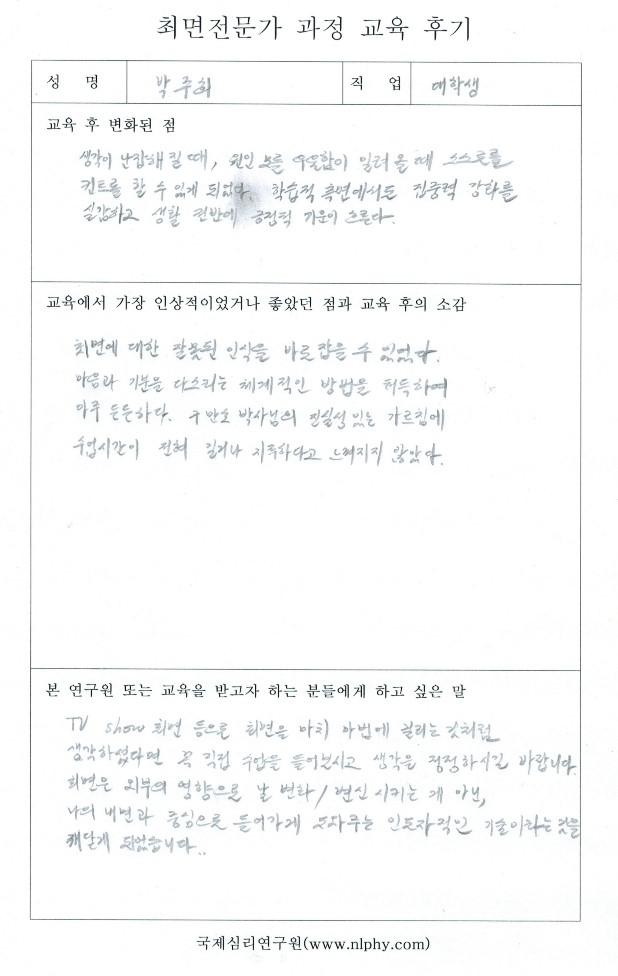 최면전문가 과정 교육 후기
성 명 박주희 직 업 대학생
교육 후 변화된 점
생각이 난잡해질 때, 원인 모를 우울함이 밀려올 때 스스로를
컨트롤 할 수 있게 되었다. 학습적 측면에서도 집중력 강화를
실감하고 생활 전반에 긍정적 기운이 흐른다.
교육에서 가장 인상적이었거나 좋았던 점과 교육 후의 소감
최면에 대한 잘못된 인식을 바로 잡을 수 있었다.
마음과 기분을 다스리는 체계적인 방법을 터득하여
아주 든든하다. 구만호 박사님의 진실성 있는 가르침에
수업시간이 전혀 길거나 지루하다고 느껴지지 않았다.
본 연구원 또는 교육을 받고자 하는 분들에게 하고 싶은 말
TV show 최면 등으로 최면을 마치 마법에 걸리는 것처럼
생각하셨다면 꼭 직접 수업을 들어보시고 생각을 정정하시길 바랍니다.
최면은 외부의 영향으로 날 변화/변신 시키는 게 아닌,
나의 내면과 중심으로 들어가게 도와주는 인도자적인 기술이라는 것을
깨닫게 되었습니다..
국제심리연구원(www.nlphy.com)